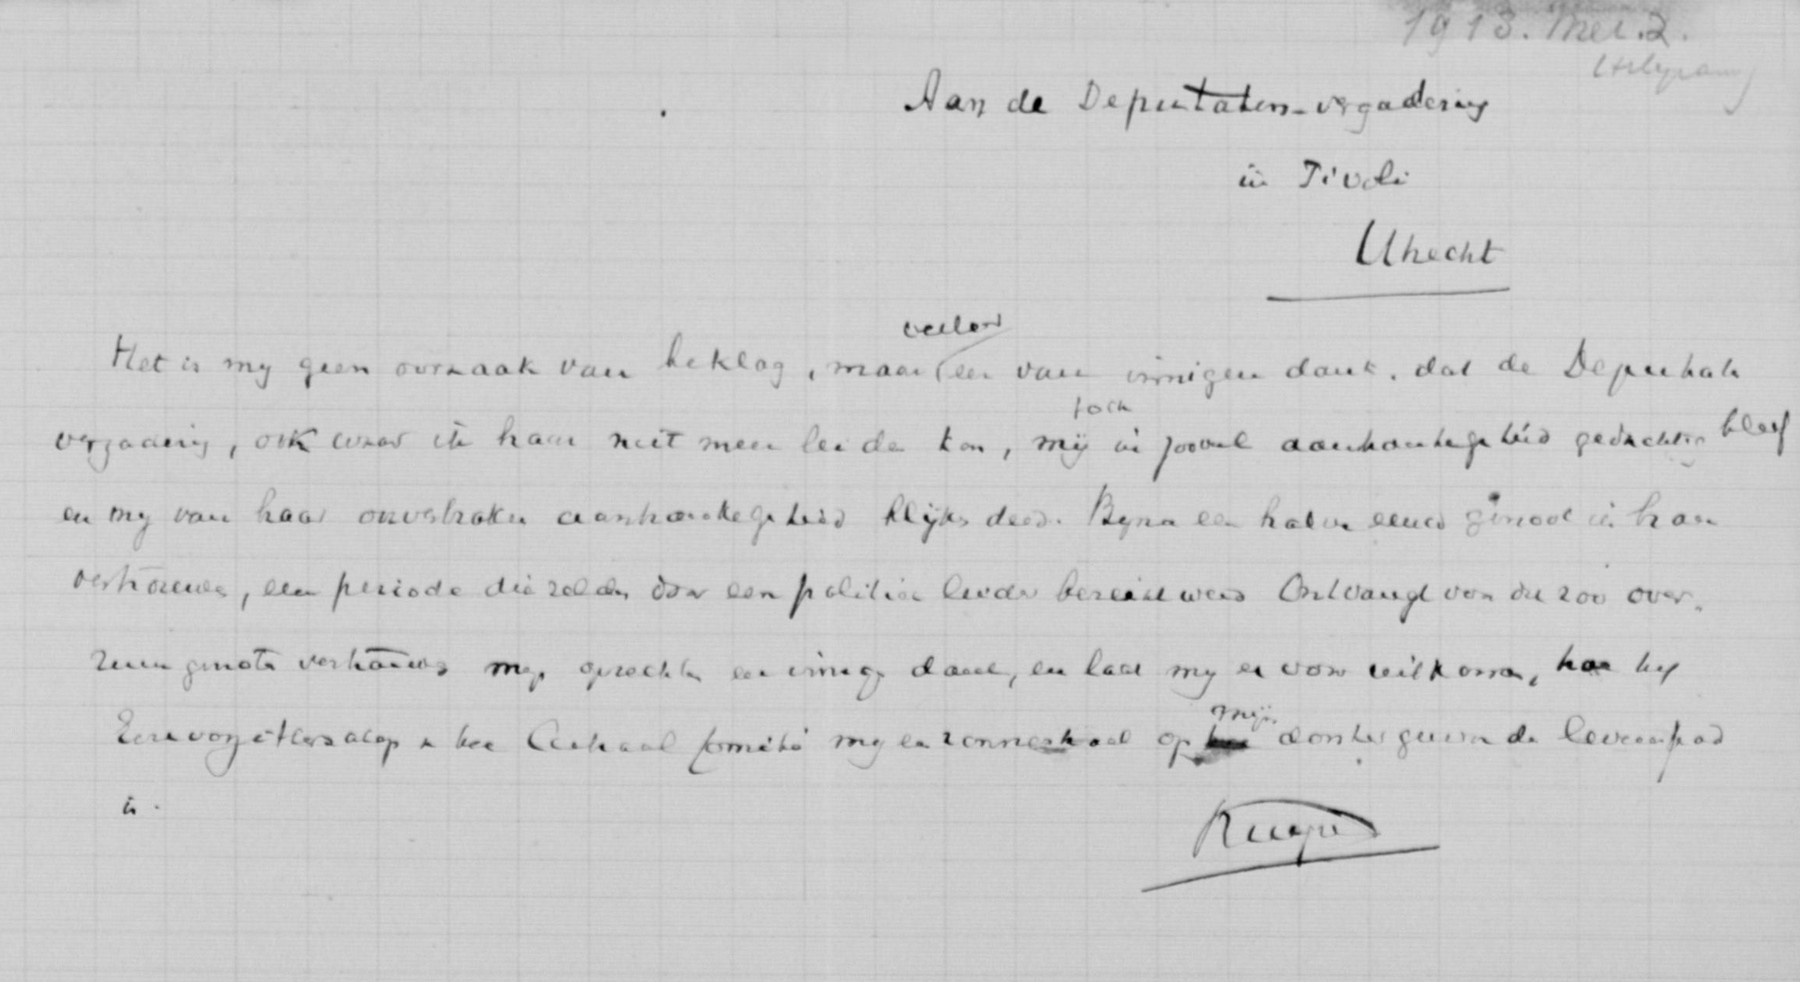 1913. Mei. 2.
Aan de Deputaten-vergadering
in Tivoli
Utrecht
veeleer
Het is my geen oorzaak van beklag, maar een van innigen dank. dat de Deputate
toch
vergadering, ook waar ik haar niet meer leiden kon, mij in zooveel aanhankelijkheid gedachtig bleef
en my van haar onverbroken aanhankelijkheid blijk deed. Byna een halve eeuw genoot ik haar
vertrouwen, een periode die zelden door een politiek leider bereikt werd Ontvangt voor dit zoo over-
genoten vertrouwen myn oprechten en innigen dank, en laat my er voor uitkomen, het
Eerevoorzitterschap Centraal Comité my een zonnestraal op
mijn
levenspad
is.
Kuyper